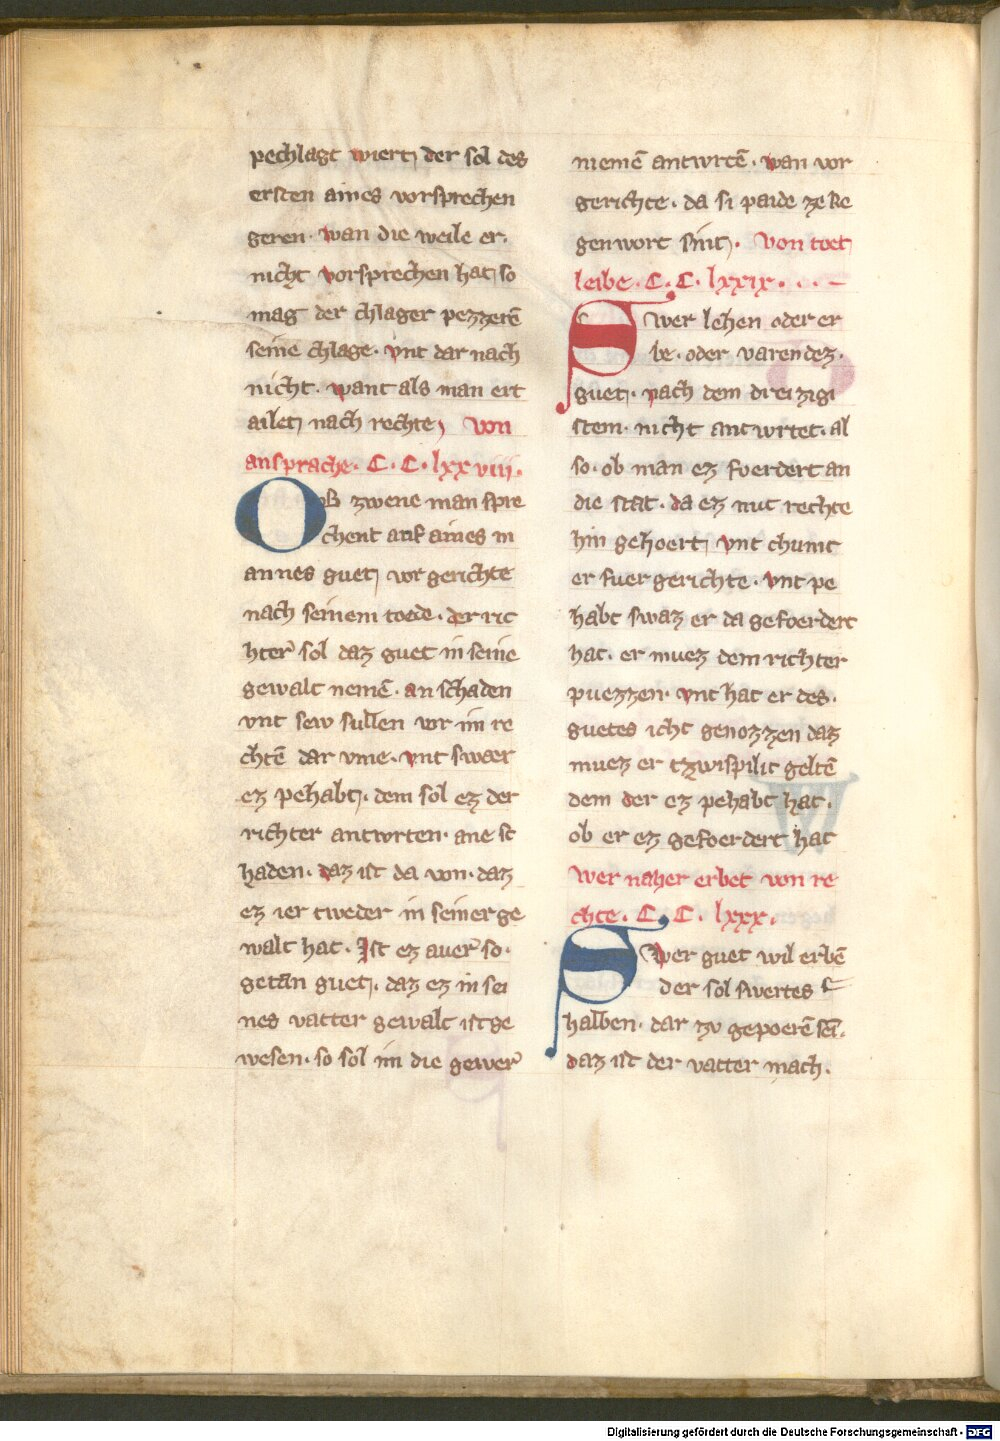 pechlagt wiert, der sol des
ersten aines vorsprechen
geren · wan die weile er ·
nicht vorsprechen hat, so
mag der chlager pezzerē
seine chlage · vnt dar nach
nicht · want als man ert
ailet, nach rechte, von
ansprache · C · C · lxxviii ·
OB zwene man spre
chent auf aines m
annes guet, vor gerichte
nach seinem toede · der ric
hter sol daz guet in seine
gewalt nemē · an schaden
vnt sew sullen vor im re
chtē dar vme · vnt swaer
ez pehabt, · dem sol ez der
richter antwrten · ane sc
haden · daz ist da von · daz
ez ier tweder in seiner ge
walt hat · Ist ez auer so ·
getan guet, · daz ez in sei
nes vatter gewalt ist ge
wesen · so sol im die gewer
niemē antwrtē · wan vor
gerichte · da si paide ze ke
genwort sint, · von toet
leibe · C · C · lxxix · · · –
Swer lehen oder er
be · oder varendez ·
guet, · nach dem dreizigi
stem · nicht antwrtet · al
so · ob man ez foerdert an
die stat · da ez mit rechte
hin gehoert, vnt chumt
er fuer gerichte · vnt pe
habt swaz er da gefoerdert
hat · er muez dem richter
puezzen · vnt hat er des ·
guetes icht genozzen daz
muez er tzwispilic geltē
dem der ez pehabt hat ·
ob er ez gefoerdert hat
wer naher erbet von re
chte · C · C · lxxx ·
Swer guet wil erbē
der sol swertes
halben · dar zv gepoerē sī ·
daz ist der vatter mach ·
Digitalisierung gefördert durch die Deutsche Forschungsgemeinschaft - DFG